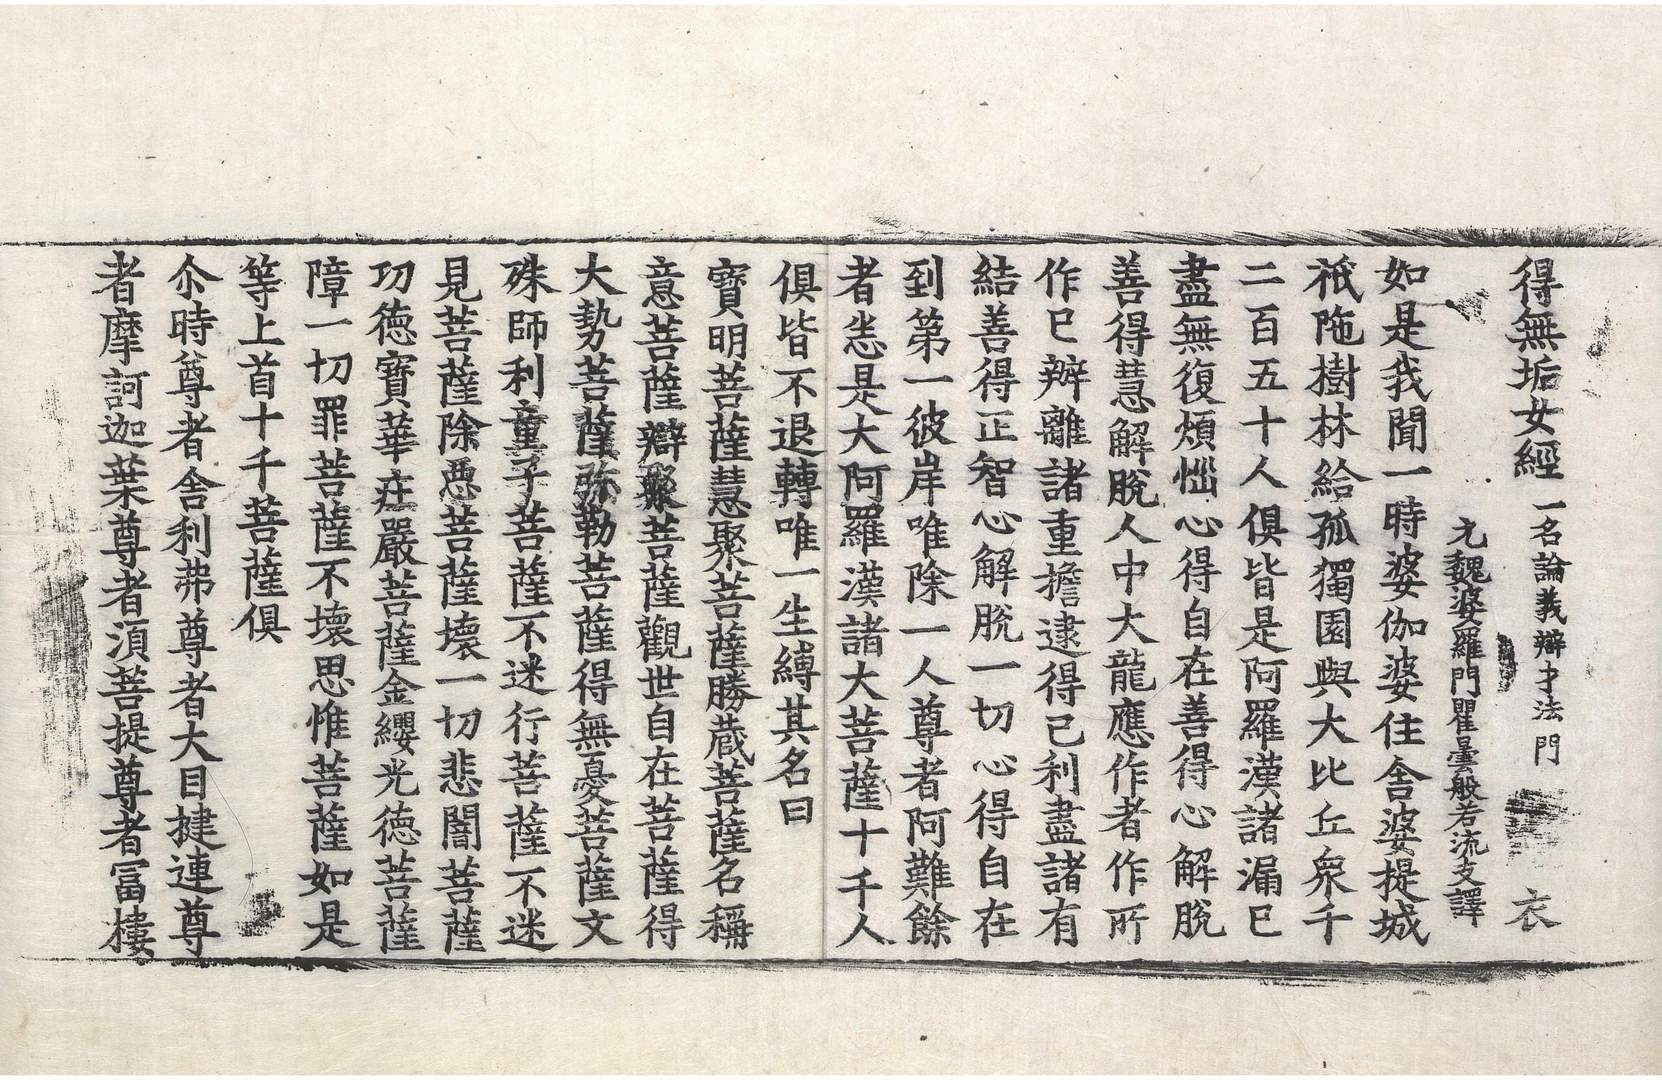 得無垢女經 一名論義辯才法門 衣
元魏婆羅門瞿曇般若流支譯
如是我聞一時婆伽婆住舍婆提城
祇陁樹林給孤獨園與大比丘衆千
二百五十人俱皆是阿羅漢諸漏已
盡無復煩惱心得自在善得心解脫
善得慧解脫人中大龍應作者作所
作已辦離諸重擔逮得己利盡諸有
結善得正智心解脫一切心得自在
到第一彼岸唯除一人尊者阿難餘
者悉是大阿羅漢諸大菩薩十千人
俱皆不退轉唯一生縛其名曰
寶明菩薩慧聚菩薩勝藏菩薩名稱
意菩薩辯聚菩薩觀世自在菩薩得
大勢菩薩弥勒菩薩得無憂菩薩文
殊師利童子菩薩不迷行菩薩不迷
見菩薩除惡菩薩壞一切悲闇菩薩
功德寶華莊嚴菩薩金纓光德菩薩
障一切罪菩薩不壞思惟菩薩如是
等上首十千菩薩俱
尒時尊者舍利弗尊者大目揵連尊
者摩訶迦葉尊者湏菩提尊者富樓